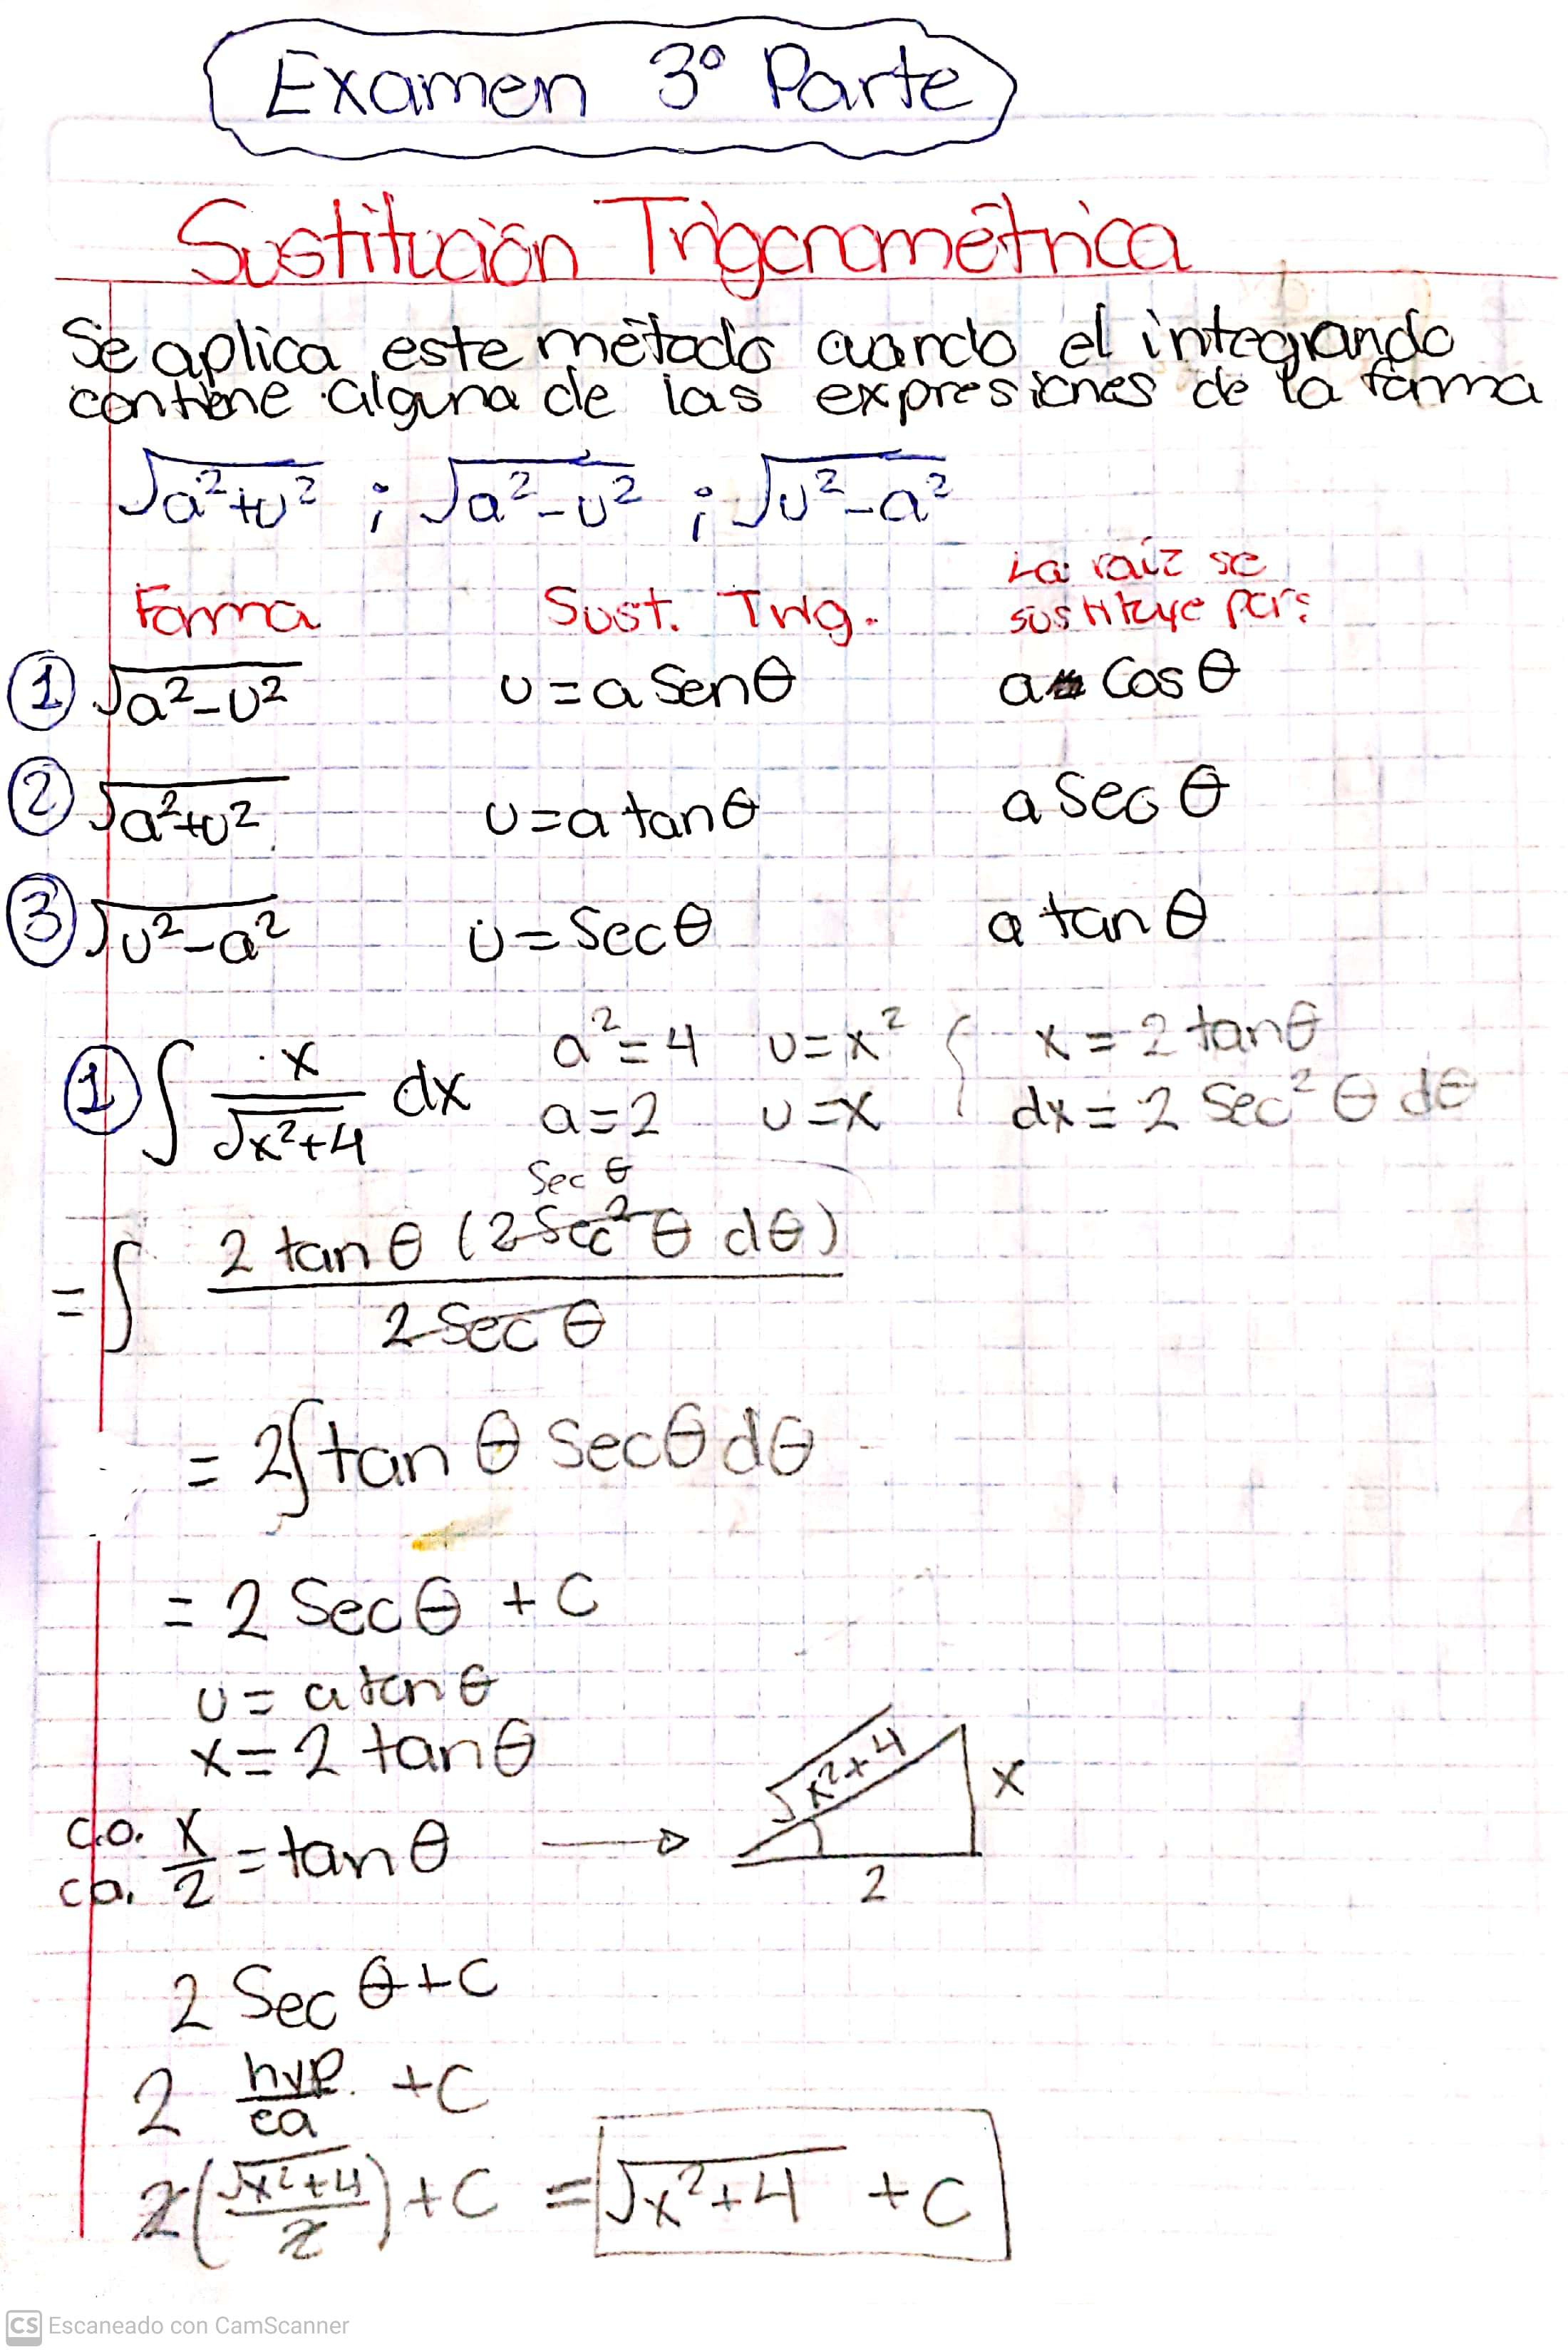 Examen 3° Parte
Sustitución Trigonométrica
Se aplica este método cuando el integrando
contiene alguna de las expresiones de la forma
√a²+u² ; √a²-u² ; √u²-a²
Forma Sust. Trig. La raíz se sustituye por:
① √a²-u² u=a Senθ a Cos θ
② √a²+u² u=a tanθ a Sec θ
③ √u²-a² u=Secθ a tan θ
① ∫ x/√x²+4 dx a²=4 u=x² { x=2 tanθ
a=2 u=x dx=2 Sec² θ dθ
Sec θ
=∫ 2 tan θ (2Sec² θ dθ)/2 Sec θ
= 2∫tan θ Secθ dθ
= 2 Sec θ + C
u= a tan θ
x=2 tanθ
c.o. x/2 = tan θ → √x²+4 x
c.a. 2
2 Sec θ+C
2 hyp./ca +C
2(√x²+4/2)+C = √x²+4 +C
CS Escaneado con CamScanner